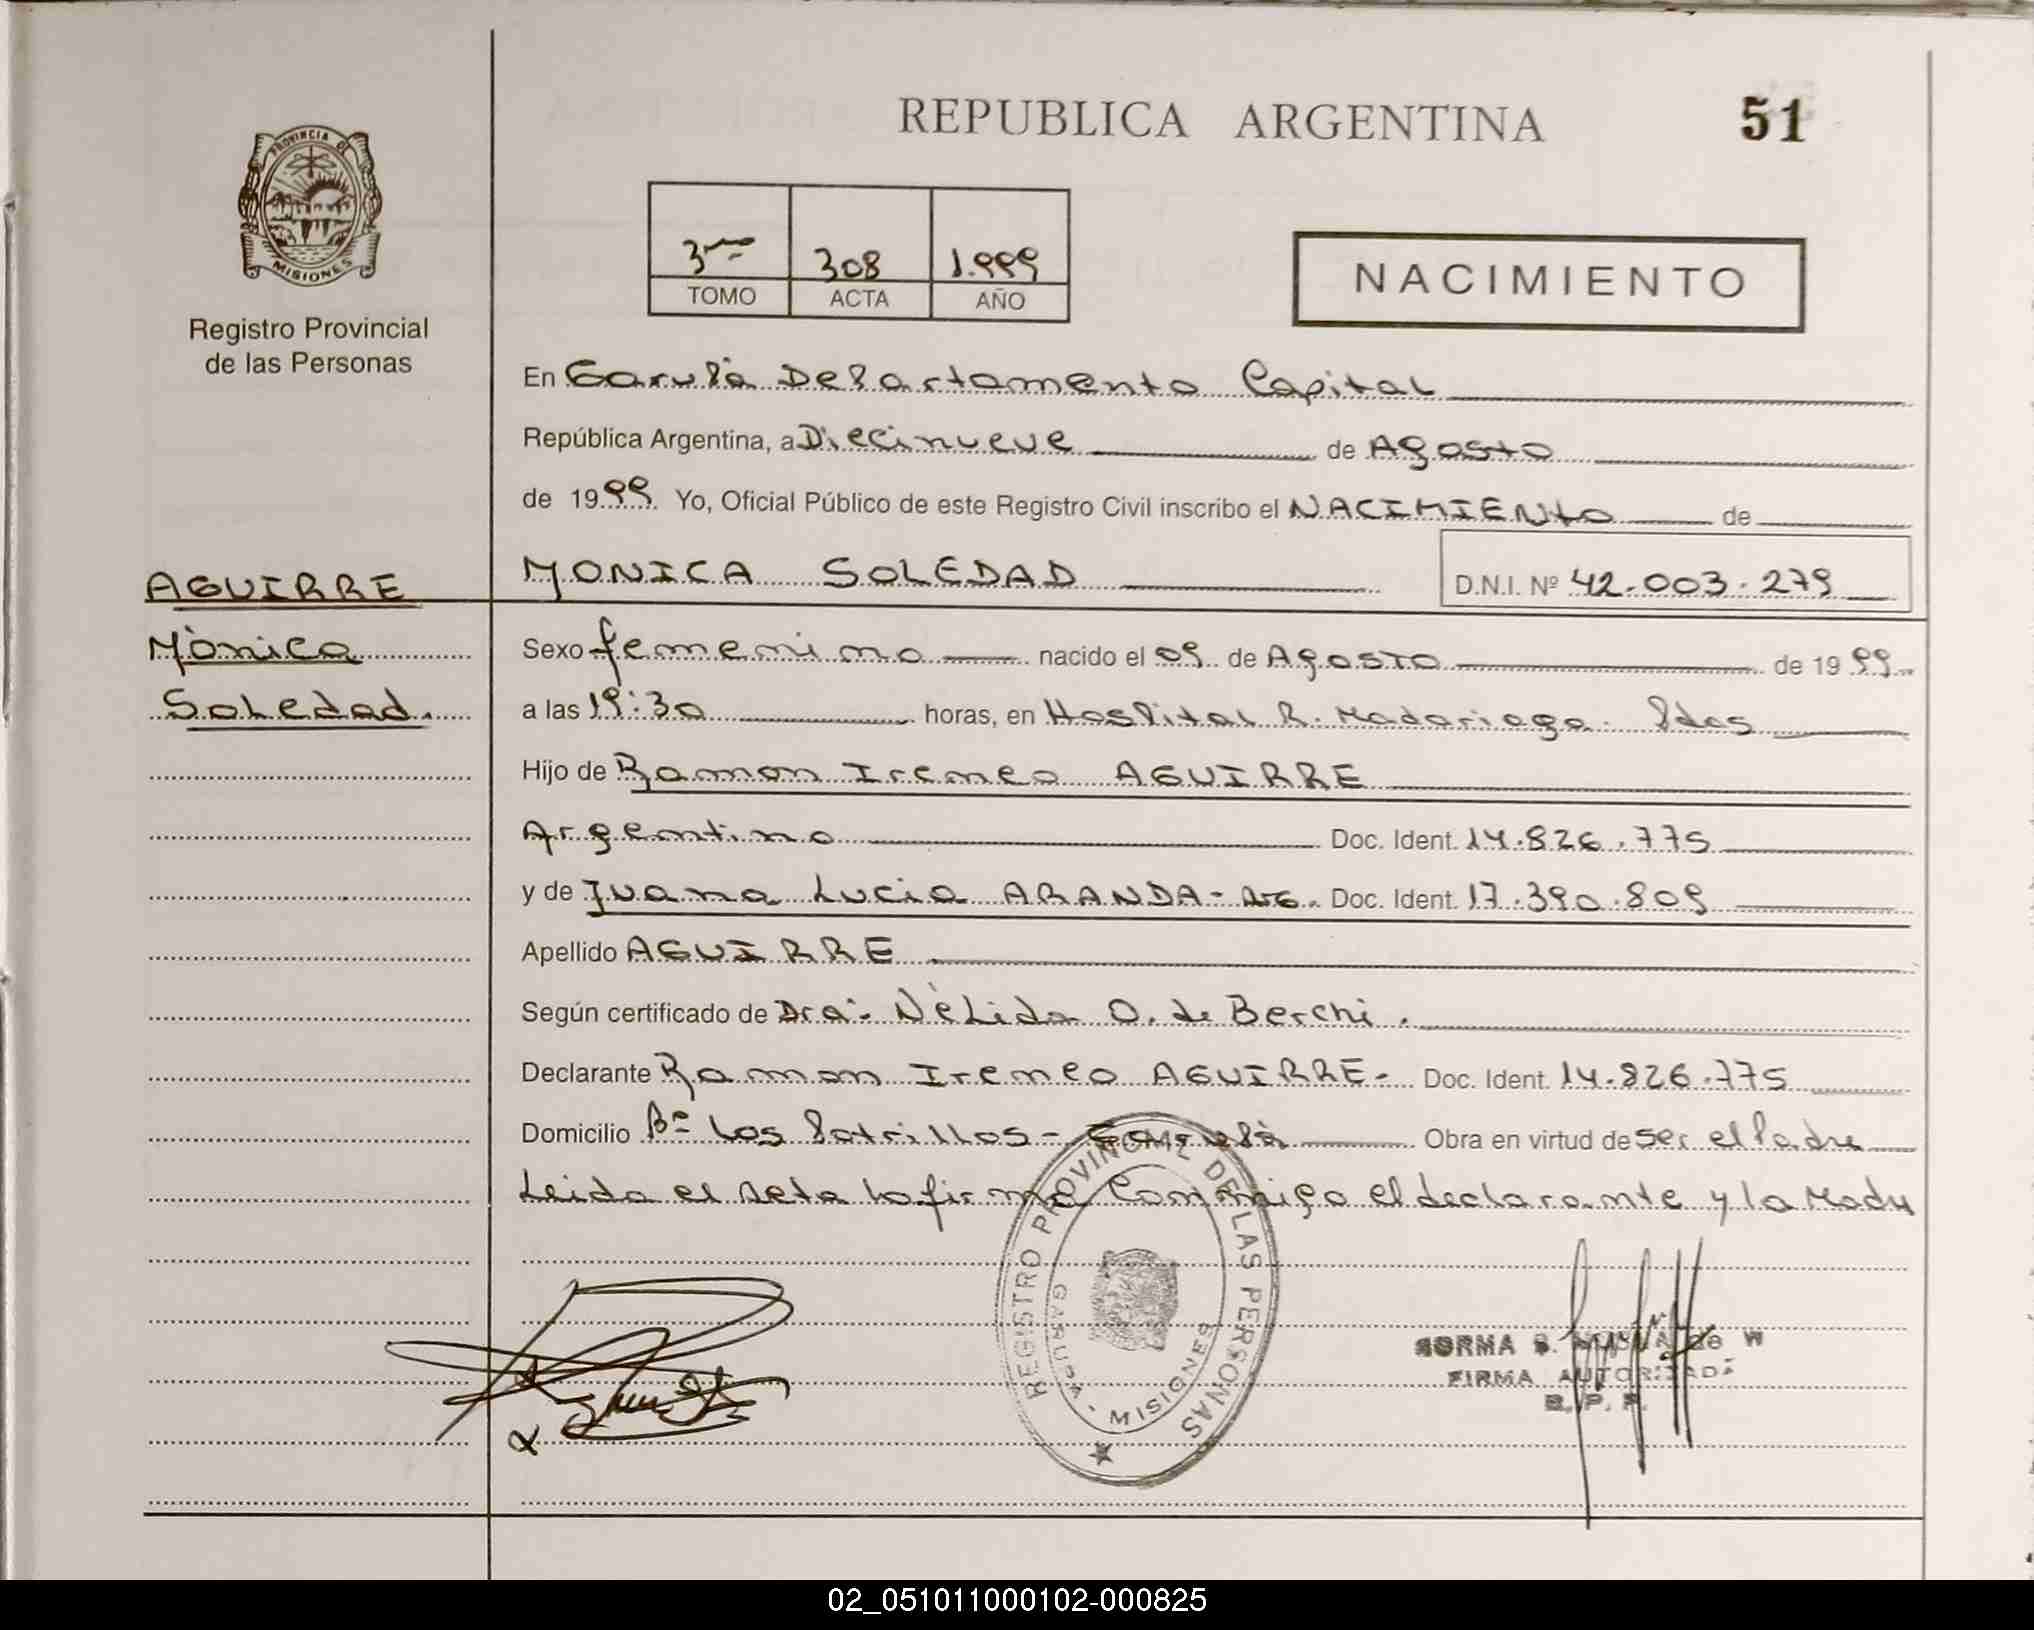 REPUBLICA ARGENTINA
51
PROVINCIA DE
MISIONES
Registro Provincial
de las Personas
3ero 308 1.999
TOMO ACTA AÑO
NACIMIENTO
En Garupá Departamento Capital
República Argentina, a Diecinueve de Agosto
de 1999 Yo, Oficial Público de este Registro Civil inscribo el NACIMIENto de
AGUIRRE
Mònica
Soledad.
MONICA SOLEDAD
D.N.I. Nº 42.003.279
Sexo femenino nacido el 09 de Agosto de 1999
a las 19:30 horas, en Hospital R. Madariaga. Pdas
Hijo de Ramon Ireneo AGUIRRE
Argentino Doc. Ident. 14.826.775
y de Juana Lucia ARANDA - ArG. Doc. Ident. 17.390.809
Apellido AGUIRRE
Según certificado de Dra. Nèlida O. de Berchi.
Declarante Ramon Ireneo AGUIRRE- Doc. Ident. 14.826.775
Domicilio Bº Los Potrillos - Garupà Obra en virtud de ser el Padre
Leida el Acta la firma Conmigo el declarante y la Madre
REGISTRO PROVINCIAL DE LAS PERSONAS
GARUPA - MISIONES
NORMA de W
FIRMA AUTORIZADA
R. P. P.
02_051011000102-000825